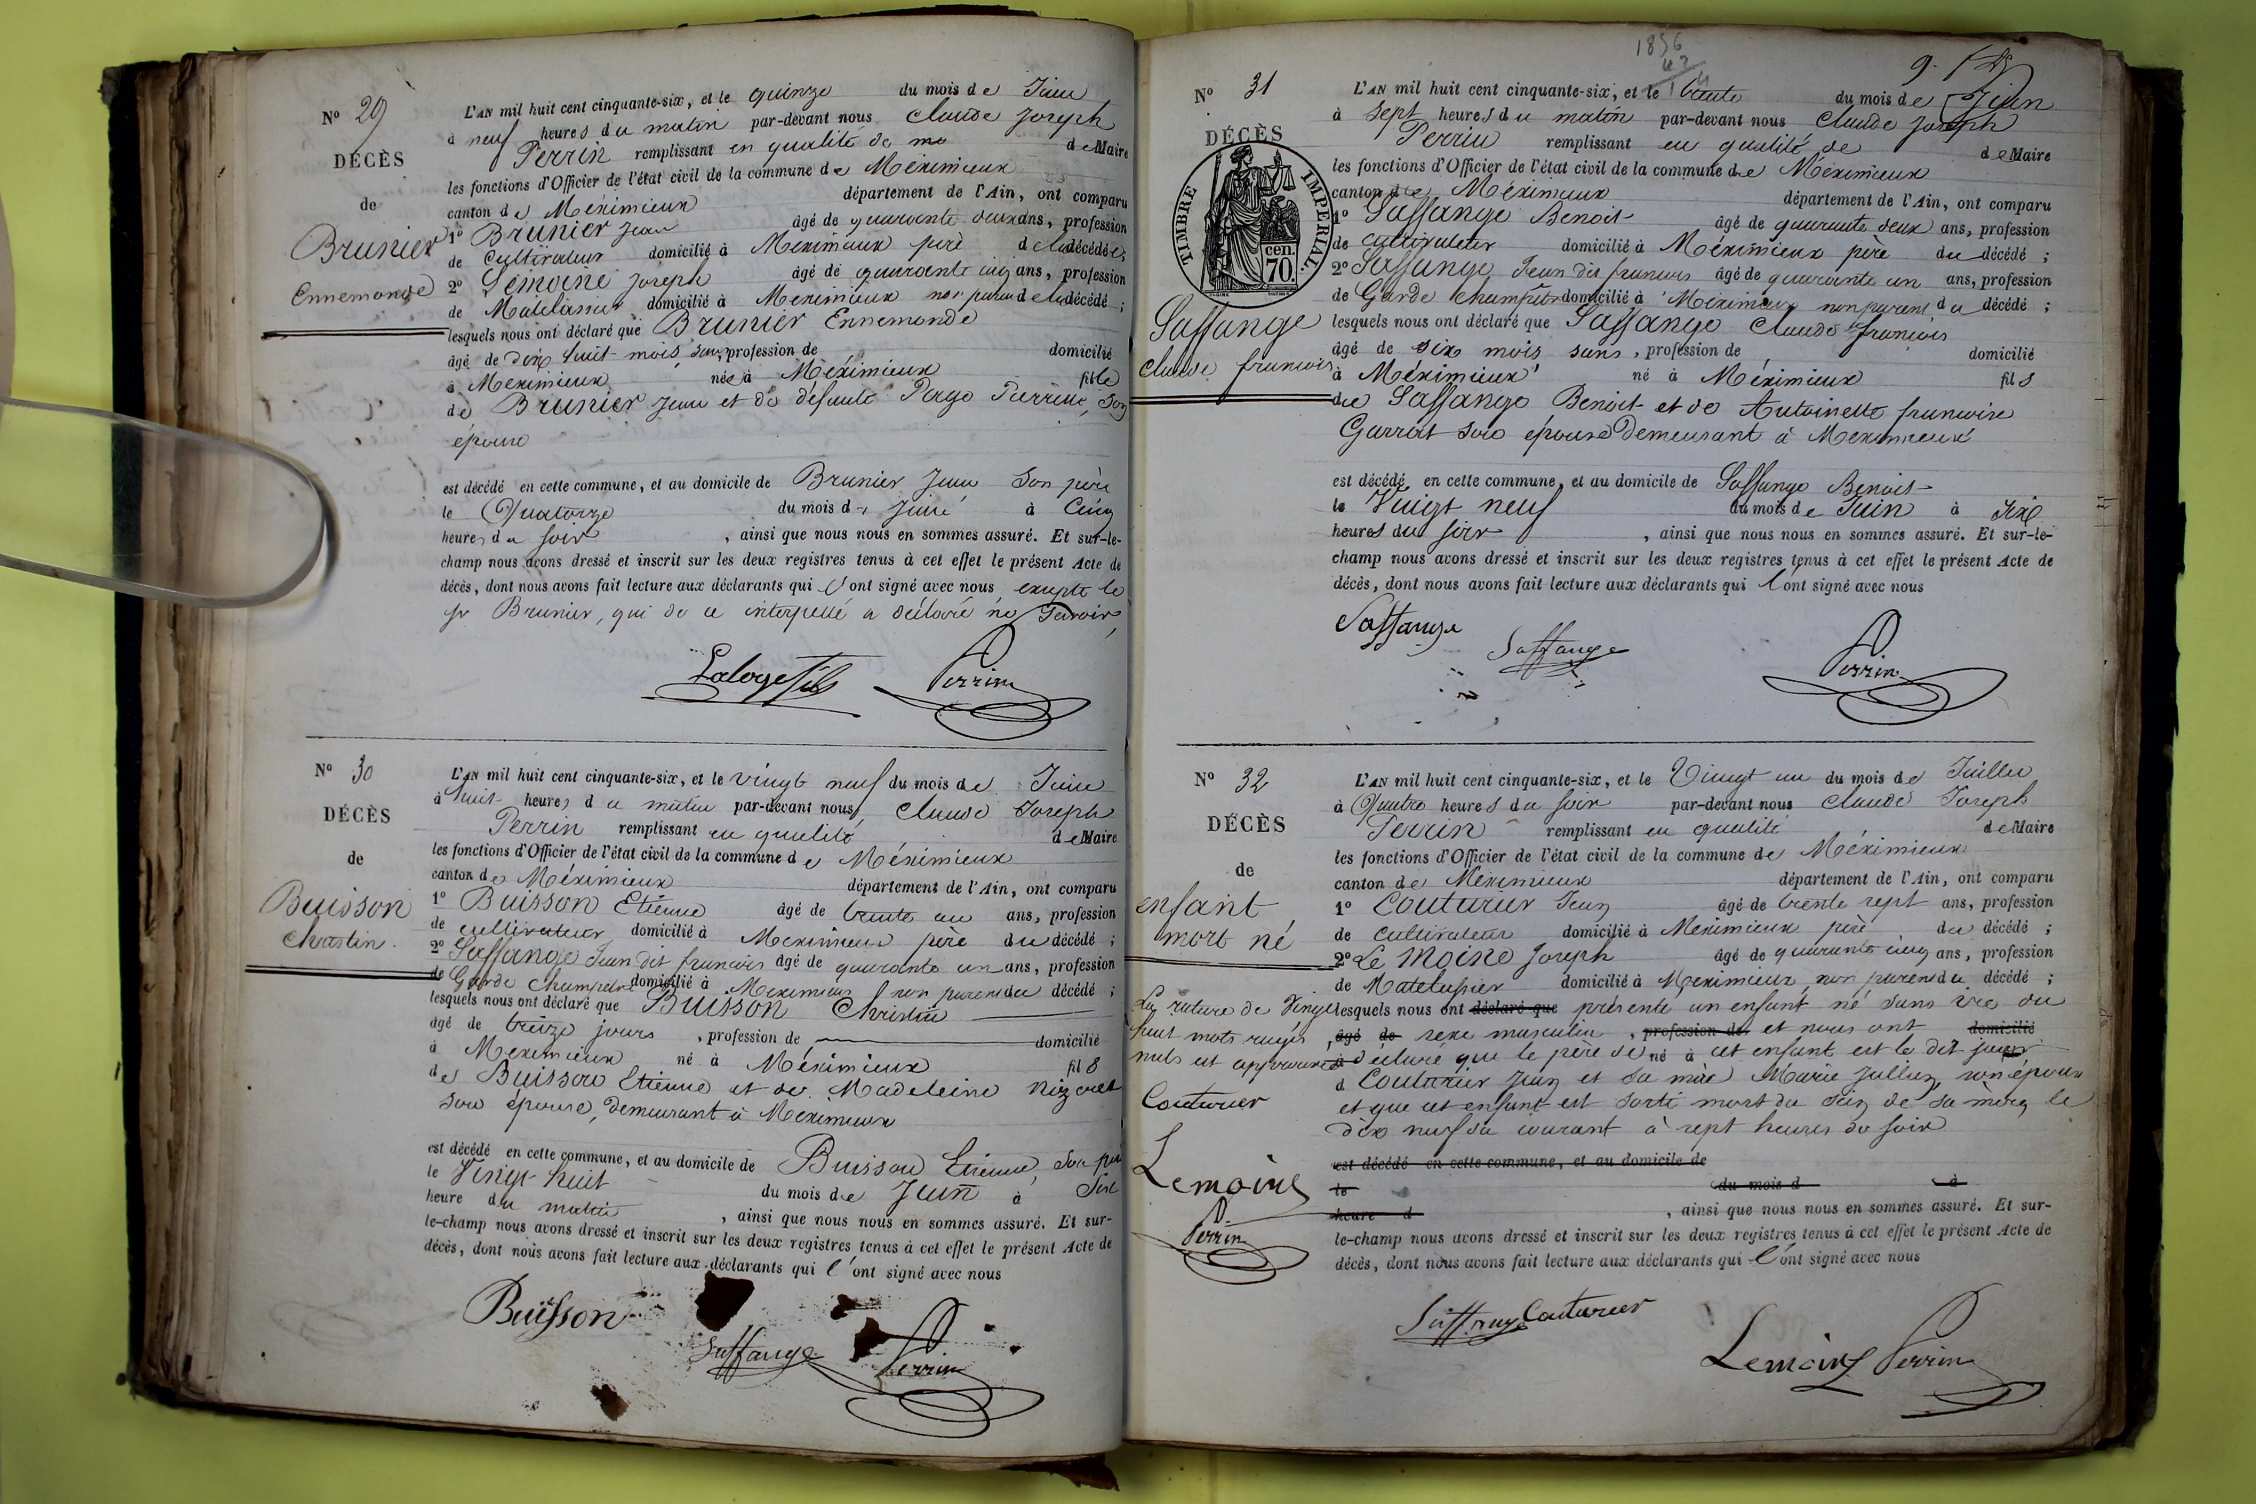 Nº 29
DÉCÈS
de
Brunier
Ennemonde
L'AN mil huit cent cinquante-six, et le quinze du mois de Juin
à neuf heures du matin par-devant nous Claude Joseph
Perrin remplissant en qualité de de Maire
les fonctions d'Officier de l'état civil de la commune de Méximieux
canton de Méximieux département de l'Ain, ont comparu
1º Brunier Jean âgé de quarante deux ans, profession
de Cultivateur domicilié à Meximieux père de la décédée;
2º Lemoine Joseph âgé de quarante cinq ans, profession
de Matelassier domicilié à Meximieux non parent de la décédé ;
lesquels nous ont déclaré que Brunier Ennemonde
âgé de dix huit mois, sans profession de domicilié
à Meximieux née à Méximieux fille
de Brunier Jean et de défunte Pierrette son
épouse
est décédé en cette commune, et au domicile de Brunier Jean son père
le Quatorze du mois de Juin à Cinq
heures du soir , ainsi que nous nous en sommes assuré. Et sur-le-
champ nous avons dressé et inscrit sur les deux registres tenus à cet effet le présent Acte de
décès, dont nous avons fait lecture aux déclarants qui l'ont signé avec nous excepté le
sr Brunier, qui de ce interpellé a déclaré ne savoir
Perrin
Nº 30
DÉCÈS
de
Buisson
Christin.
L'AN mil huit cent cinquante-six, et le vingt neuf du mois de Juin
à huit heures du matin par-devant nous Claude Joseph
Perrin remplissant en qualité de Maire
les fonctions d'Officier de l'état civil de la commune de Méximieux
canton de Méximieux département de l'Ain, ont comparu
1º Buisson Etienne âgé de trente un ans, profession
de cultivateur domicilié à Meximieux père du décédé ;
2º Saffange Jean dit francois âgé de quarante un ans, profession
de Garde Champêtre domicilié à Meximieux non parent du décédé ;
lesquels nous ont déclaré que Buisson Christin
âgé de treize jours , profession de domicilié
à Meximieux né à Méximieux fils
de Buisson Etienne et de Madeleine
son épouse, demeurant à Meximieux
est décédé en cette commune, et au domicile de Buisson Etienne, son père
le Vingt huit du mois de Juin à Six
heure du matin , ainsi que nous nous en sommes assuré. Et sur-
le-champ nous avons dressé et inscrit sur les deux registres tenus à cet effet le présent Acte de
décès, dont nous avons fait lecture aux déclarants qui l'ont signé avec nous
Buisson
Saffange Perrin
1856
Nº 31
DÉCÈS
TIMBRE IMPÉRIAL.
cen. 70.
Saffange
Claude francois
L'AN mil huit cent cinquante-six, et le trente du mois de Juin
à sept heures du matin par-devant nous Claude Joseph
Perrin remplissant en qualité de de Maire
les fonctions d'Officier de l'état civil de la commune de Méximieux
canton de Méximieux département de l'Ain, ont comparu
1º Saffange Benoit âgé de quarante deux ans, profession
de cultivateur domicilié à Méximieux père du décédé ;
2º Saffange Jean dit francois âgé de quarante un ans, profession
de Garde champêtre domicilié à Méximieux non parent du décédé ;
lesquels nous ont déclaré que Saffange Claude francois
âgé de six mois sans , profession de domicilié
à Méximieux né à Méximieux fils
de Saffange Benoit et de Antoinette francoise
son épouse demeurant à Meximieux
est décédé en cette commune, et au domicile de Saffange Benoit
le Vingt neuf du mois de Juin à Six
heures du soir , ainsi que nous nous en sommes assuré. Et sur-le-
champ nous avons dressé et inscrit sur les deux registres tenus à cet effet le présent Acte de
décès, dont nous avons fait lecture aux déclarants qui l'ont signé avec nous
Saffange
Saffange
Perrin
Nº 32
DÉCÈS
de
enfant
mort né
La rature de Vingt
huit mots rayés
nuls est approuvée
Couturier
Lemoine
Perrin
L'AN mil huit cent cinquante-six, et le Vingt un du mois de Juillet
à Quatre heures du soir par-devant nous Claude Joseph
Perrin remplissant en qualité de Maire
les fonctions d'Officier de l'état civil de la commune de Méximieux
canton de Méximieux département de l'Ain, ont comparu
1º Couturier Jean âgé de trente sept ans, profession
de Cultivateur domicilié à Méximieux père du décédé ;
2º Le Moine Joseph âgé de quarante cinq ans, profession
de Matelassier domicilié à Meximieux non parent du décédé ;
lesquels nous ont déclaré que présenté un enfant né sans vie du
âgé de sexe masculin , profession de et nous ont domicilié
à déclaré que le père de né à cet enfant est le dit
d Couturier Jean et sa mère Marie Jullien, son épouse
et que cet enfant est sorti mort du sein de sa mère le
dix neuf du courant à sept heures du soir
est décédé en cette commune, et au domicile de
le du mois d à
heure d , ainsi que nous nous en sommes assuré. Et sur-
le-champ nous avons dressé et inscrit sur les deux registres tenus à cet effet le présent Acte de
décès, dont nous avons fait lecture aux déclarants qui l'ont signé avec nous
Couturier
Lemoine Perrin